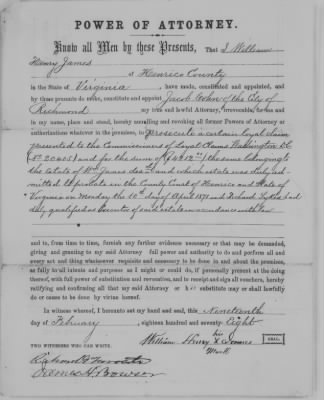 POWER OF ATTORNEY.
Know all Men by these Presents, That I William
Henry James
of Henrico County
in the State of Virginia, have made, constituted and appointed, and
by these presents do make, constitute and appoint Jacob Cohn of the City of
Richmond my true and lawful Attorney, irrevocable, for me and
in my name, place and stead, hereby annulling and revoking all former Powers of Attorney or
authorizations whatever in the premises, to prosecute a certain loyal claim
presented to the Commissioners of Loyal Claims Washington DC
and for the sum of the same belonging to
the estate of Wm James decd and which estate was duly ad-
mitted to probate in the County Court of Henrico and State of
Virginia on Monday the 10th day of April 1871 and
duly qualified as Executor of said estate in accordance with law
and to, from time to time, furnish any further evidence necessary or that may be demanded,
giving and granting to my said Attorney full power and authority to do and perform all and
every act and thing whatsoever requisite and necessary to be done in and about the premises,
as fully to all intents and purposes as I might or could do, if personally present at the doing
thereof, with full power of substitution and revocation, and to receipt and sign all vouchers, hereby
ratifying and confirming all that my said Attorney or his substitute may or shall lawfully
do or cause to be done by virtue hereof.
In witness whereof, I hereunto set my hand and seal, this Nineteenth
day of February, eighteen hundred and seventy-Eight
his
William Henry X James SEAL.
Mark
TWO WITNESSES WHO CAN WRITE.
James H. Bowser